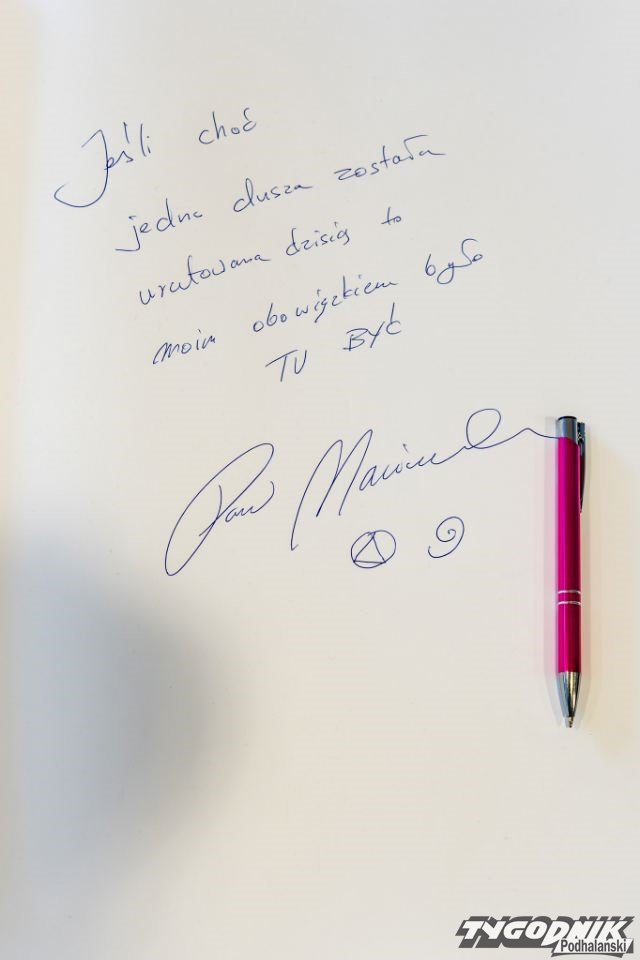 Jeśli choć
jedna dusza została
uratowana dzisiaj to
moim obowiązkiem było
TU BYĆ
TYGODNIK
Podhalański